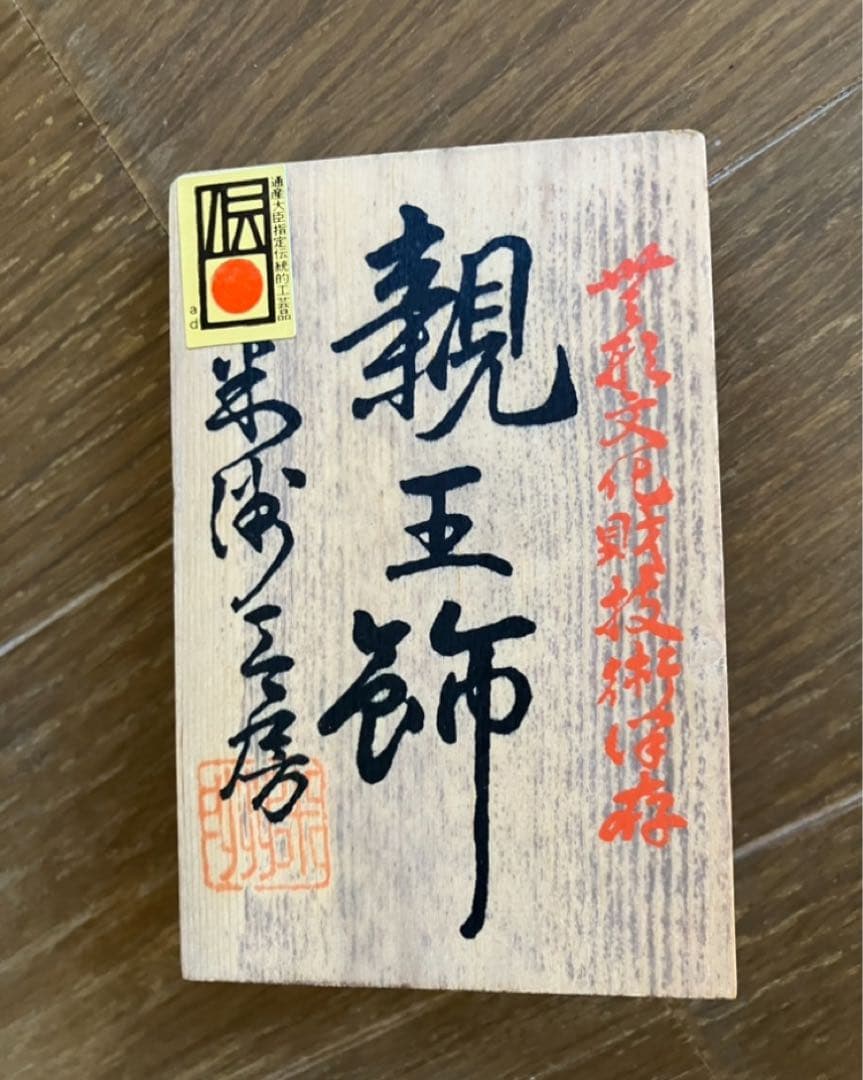 無形文化財技術保存
親王飾
米洲工房
伝
通産大臣指定伝統的工芸品
ad